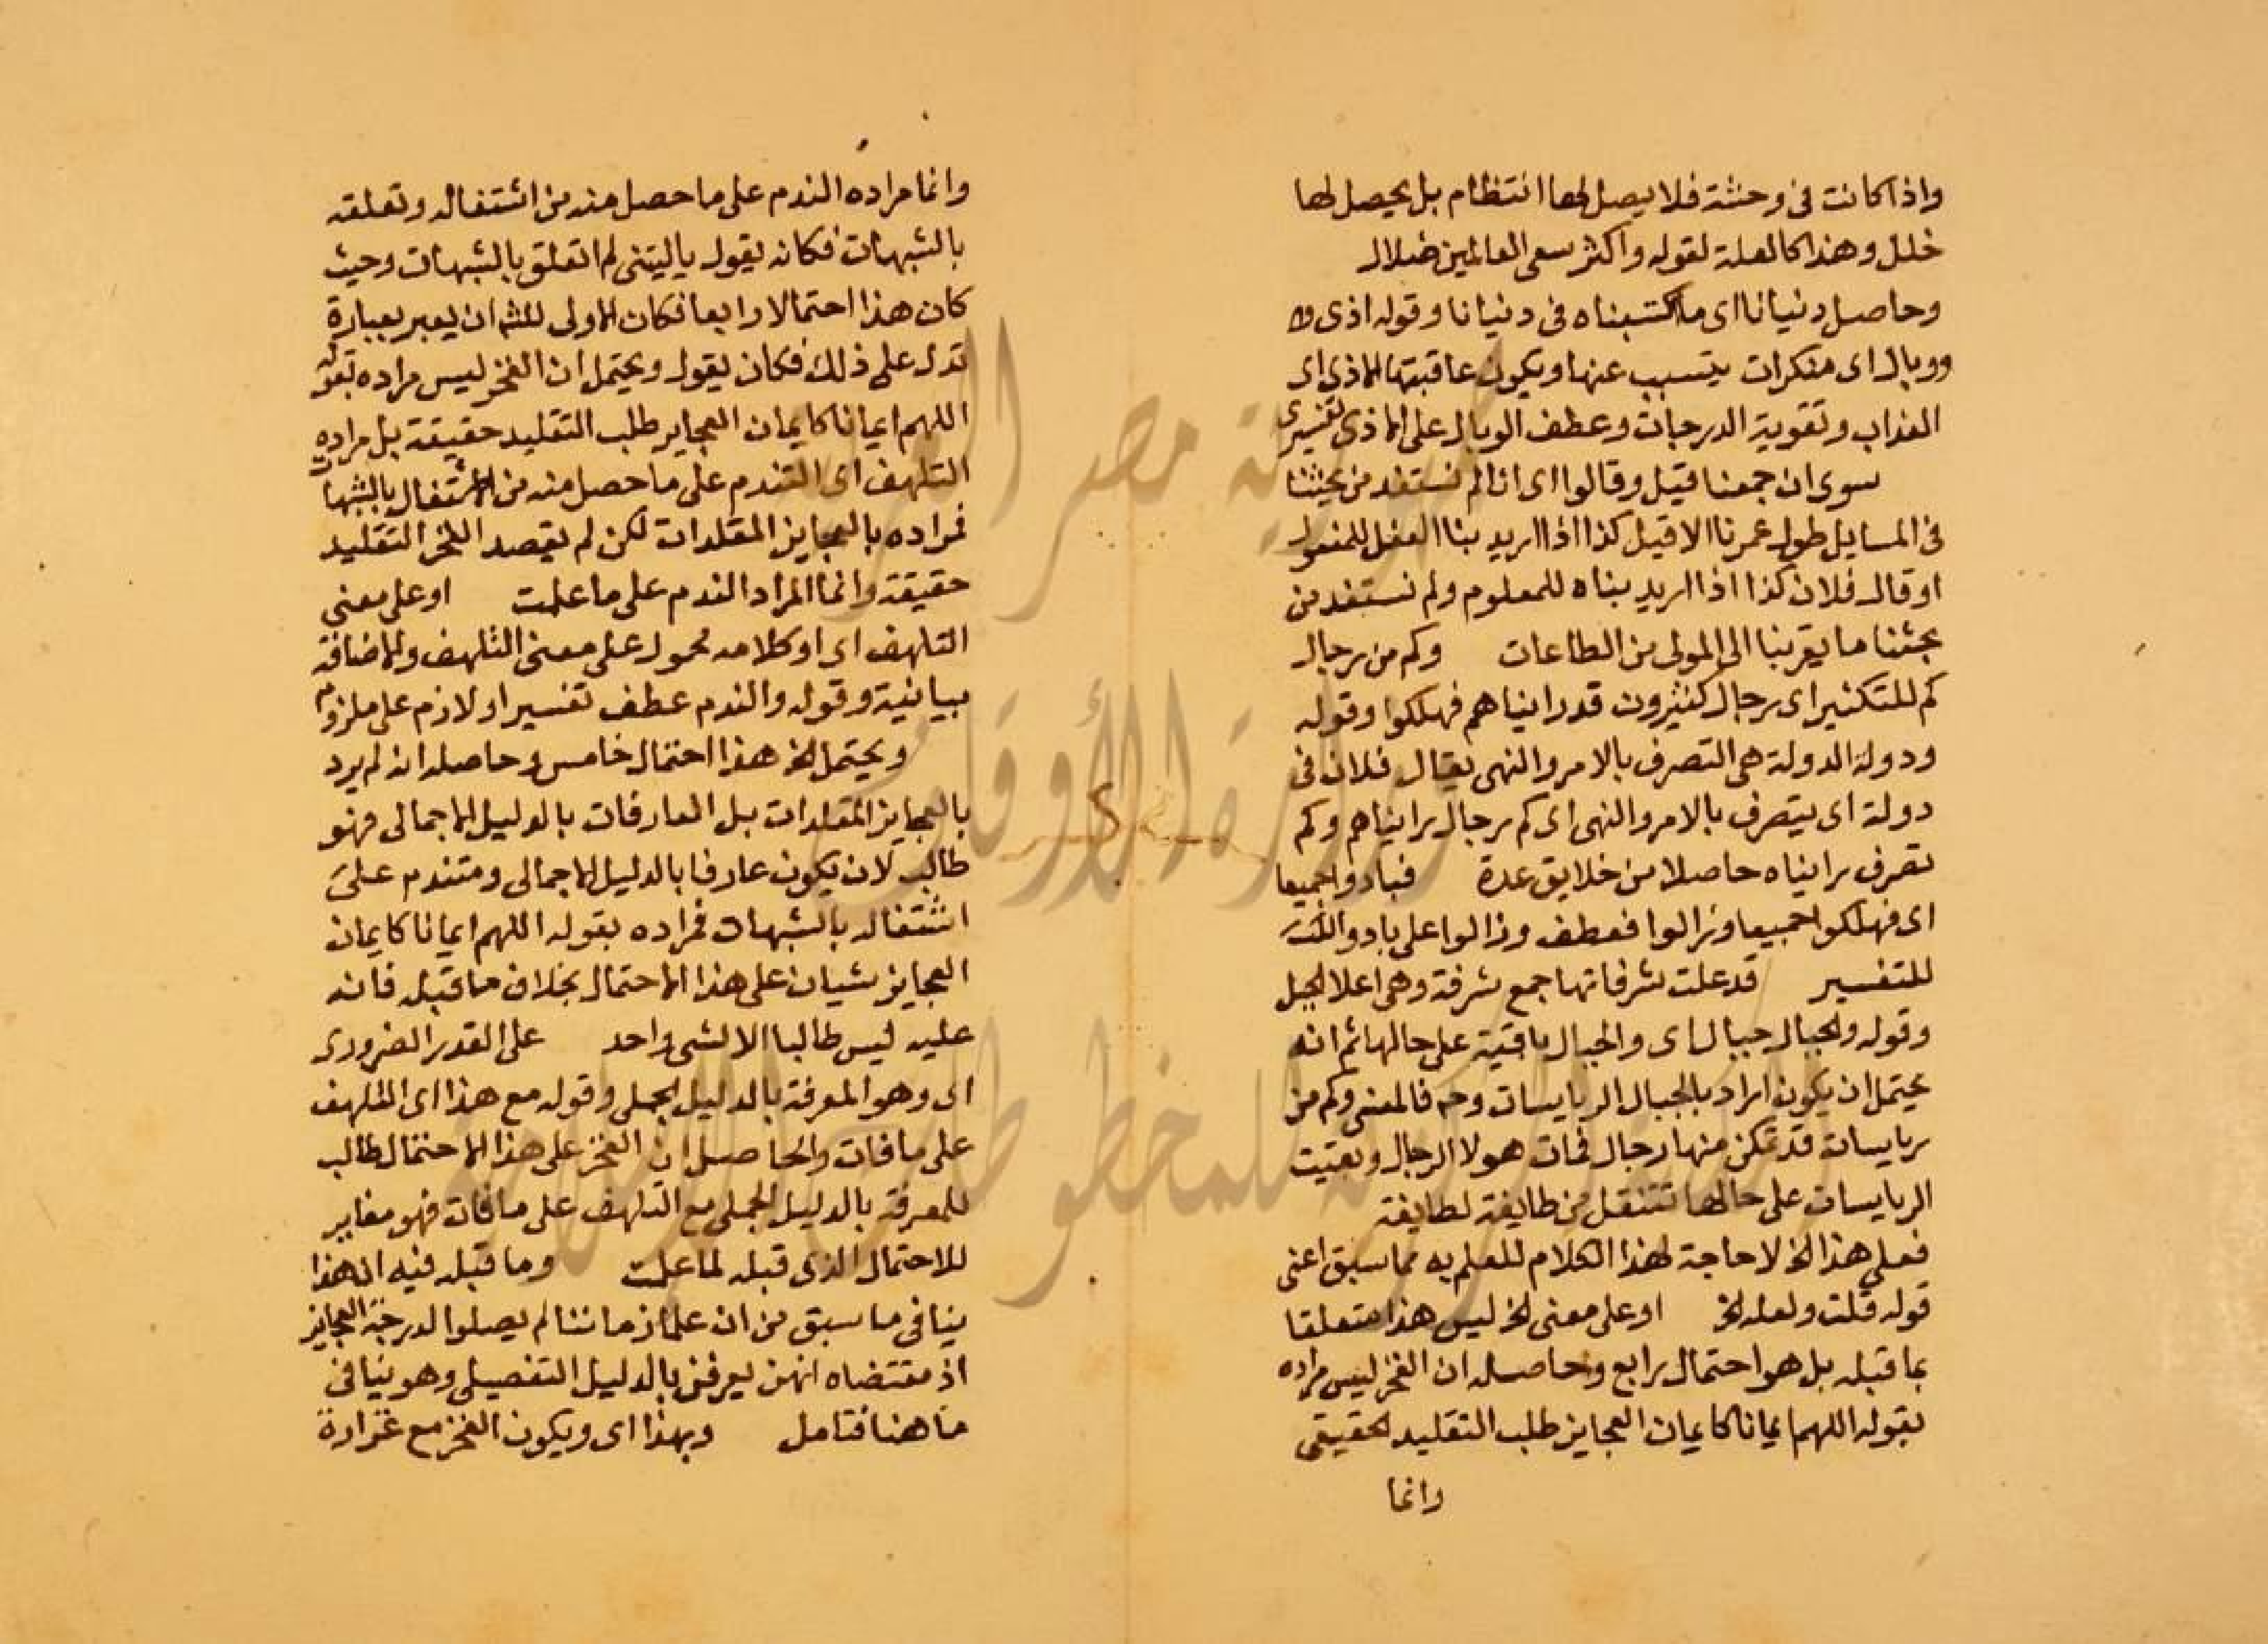 واذا كانت فى وحشة فلا يصل لها انتظام بل يحصل لها
خلل وهذا كالعلة لقوله واكثر سعى العالمين ضلال
وحاصل دنيانا اى ما اكتسبناه فى دنيانا وقوله اذى
ووبال اى منكرات يتسبب عنها ويكون عاقبتها الاذى اى
العذاب وتقوية الدرجات وعطف الوبال على الاذى تفسيرى
سوى ان جمعنا قيل وقالوا اى انا لم نستفد من بحثنا
فى المسايل طول عمرنا الا قيل كذا اذا اريد بنا الفعل للمفعول
او قال فلان كذا اذا اريد بناه للمعلوم ولم نستفد من
بحثنا ما يقربنا الى المولى من الطاعات وكم من رجال
كم للتكثير اى رجال كثيرون قد راينا هم فهلكوا وقوله
ودولة الدولة هى التصرف بالامر والنهى يقال فلان فى
دولة اى يتصرف بالامر والنهى اى كم رجال رايناهم وكم
تصرف رايناه حاصلا من خلايق عدة فبادوا جميعا
اى فهلكوا جميعا وزالوا فعطف وزالوا على بادوا
للتفسير قد علت شرفاتها جمع شرفة وهى اعلا الجبل
وقوله والجبال جبال اى والجبال باقية على حالها ثم انه
يحتمل ان يكون اراد بالجبال الريايسات وح فالمعنى وكم من
ريايسات قد تمكن منها رجال فمات هولا الرجال وبقيت
الريايسات على حالها تنتقل من طايفة لطايفة
فعلى هذا الخ لا حاجة لهذا الكلام للعلم به مما سبق اعنى
قوله قلت ولعله الخ او على معنى الخ ليس هذا متعلقا
بما قبله بل هو احتمال رابع وحاصله ان الفخر ليس مراده
بقوله اللهم ايمانا كايمان العجايز طلب التقليد الحقيقى
وانما
وانما مراده الندم على ما حصل منه من اشتغاله وتعلقه
بالشبهات فكانه يقول ياليتنى لم اتعلق بالشبهات وحيث
كان هذا احتمالا رابعا فكان الاولى للش ان يعبر بعبارة
تدل على ذلك فكان يقول ويحتمل ان الفخر ليس مراده بقوله
اللهم ايمانا كايمان العجايز طلب التقليد حقيقة بل مراده
التلهف اى التندم على ما حصل منه من الاشتغال بالشبهات
فمراده بالعجايز المقلدات لكن لم يقصد الفخر التقليد
حقيقة وانما المراد الندم على ما علمت او على معنى
التلهف اى او كلامه محمول على معنى التلهف والاضافة
بيانية وقوله والندم عطف تفسير او لازم على ملزوم
ويحتمل الخ هذا احتمال خامس وحاصله انه لم يرد
بالعجايز المقلدات بل العارفات بالدليل الاجمالى فهو
طالب لان يكون عارفا بالدليل الاجمالى ومتندم على
اشتغاله بالشبهات فمراده بقوله اللهم ايمانا كايمان
العجايز شيان على هذا الاحتمال بخلاف ما قبله فانه
عليه ليس طالبا الا لشى واحد على القدر الضرورى
اى وهو المعرفة بالدليل الجملى وقوله مع هذا اى التلهف
على ما فات والحاصل ان الفخر على هذا الاحتمال طالب
للمعرفة بالدليل الجملى مع التلهف على ما فات فهو مغاير
للاحتمال الذى قبله لما علمت وما قبله فيه ان هذا
ينافى ما سبق من ان علما زماننا لم يصلوا لدرجة العجايز
اذ مقتضاه انهن يعرفن بالدليل التفصيلى وهو ينافى
ما هنا فتامل وبهذا اى ويكون الفخر مع غزارة